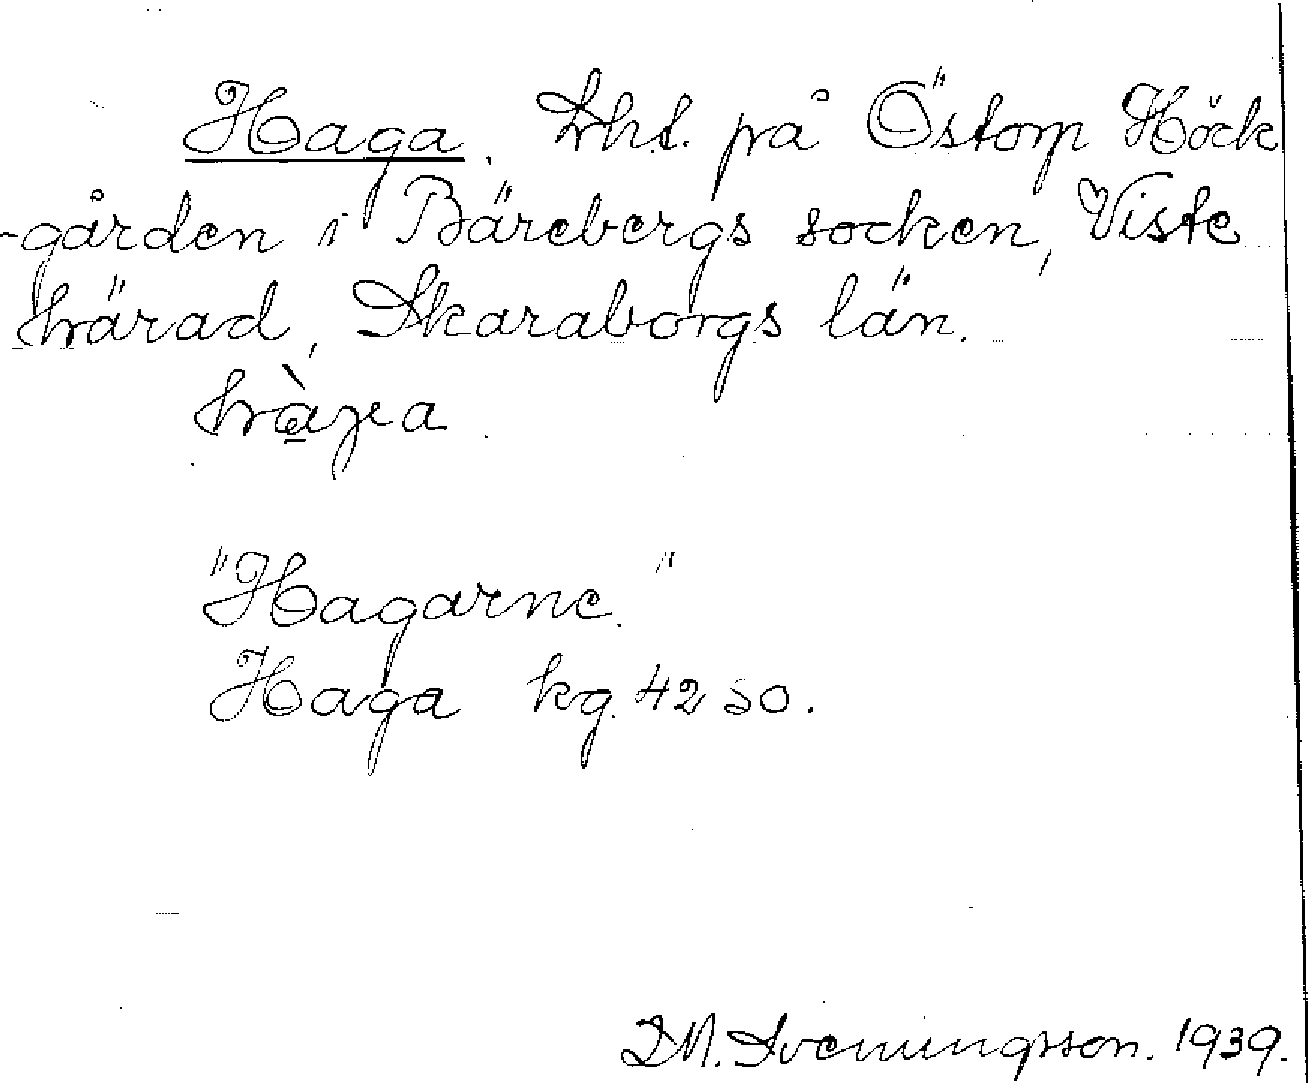 Haga. Lht. på Östorp Höck
-gården i Bärebergs socken, Viste
härad, Skaraborgs län.
hàǥa
"Hagarne."
Haga kg. 42 50.
D.M. Svenningsson. 1939.